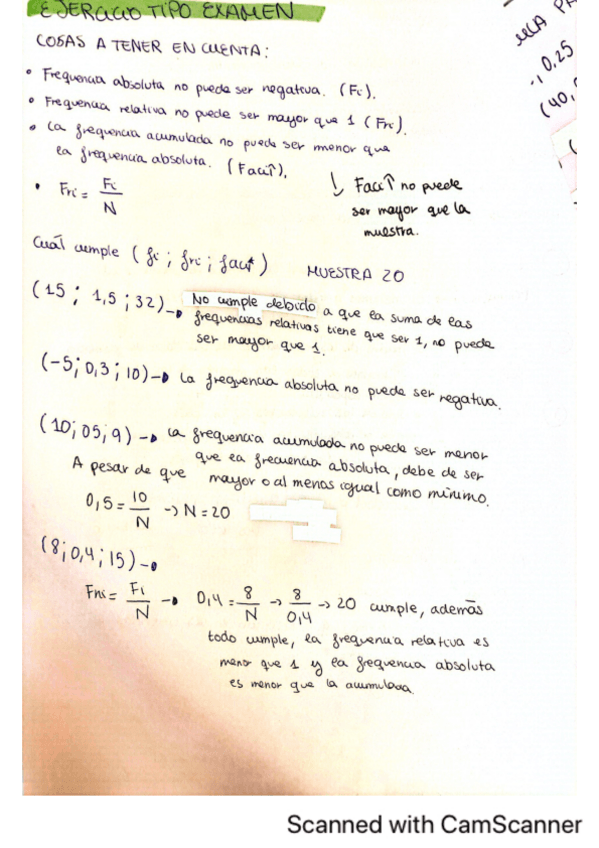 EJERCICIO TIPO EXAMEN
COSAS A TENER EN CUENTA:
• Frequencia absoluta no puede ser negativa. (Fi).
• Frequencia relativa no puede ser mayor que 1 (Fri).
• La frequencia acumulada no puede ser menor que
la frequencia absoluta. (Fac↑).
↓ Fac↑ no puede
ser mayor que la
muestra.
• Fri = Fi / N
Cuál cumple (fi ; fri ; fac↑) MUESTRA 20
(15 ; 1,5 ; 32) → No cumple debido a que la suma de las
frequencias relativas tiene que ser 1, no puede
ser mayor que 1.
(-5 ; 0,3 ; 10) → La frequencia absoluta no puede ser negativa.
(10 ; 05 ; 9) → La frequencia acumulada no puede ser menor
que la frecuencia absoluta, debe de ser
mayor o al menos igual como mínimo.
A pesar de que
0,5 = 10/N → N = 20
(8 ; 0,4 ; 15) →
Fni = Fi/N → 0,4 = 8/N → 8/0,4 → 20 cumple, además
todo cumple, la frequencia relativa es
menor que 1 y la frequencia absoluta
es menor que la acumulada
MCA PA
0,25
(40,
Scanned with CamScanner